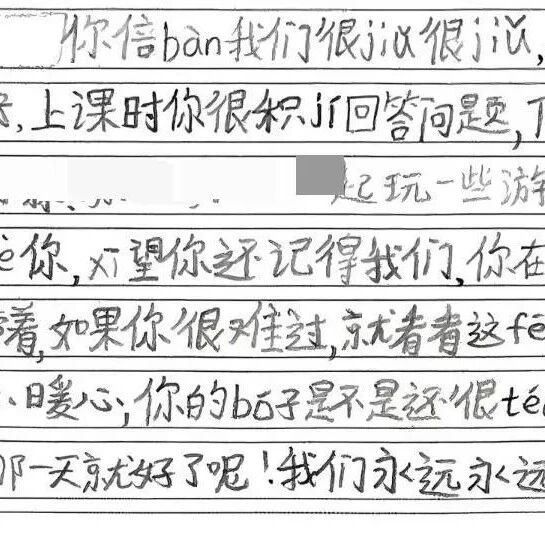 你倍bàn我们很jiǔ很jiǔ,
,上课时你很积jí回答问题,
起玩一些游
你,xī望你还记得我们,你在
着,如果你很难过,就看看这fē
暖心,你的bó子是不是还很té
那一天就好了呢!我们永远永远